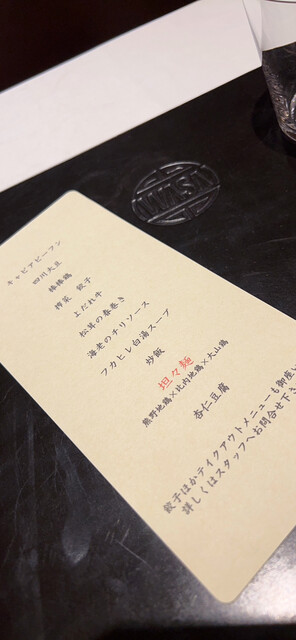 キャビアビーフン
四川大豆
棒棒鶏
搾菜 餃子
よだれ牛
松茸の春巻き
海老のチリソース
フカヒレ白湯スープ
炒飯
担々麺
熊野地鶏×比内地鶏×大山鶏
杏仁豆腐
餃子ほかテイクアウトメニューも御座い
詳しくはスタッフへお問合せ下さ